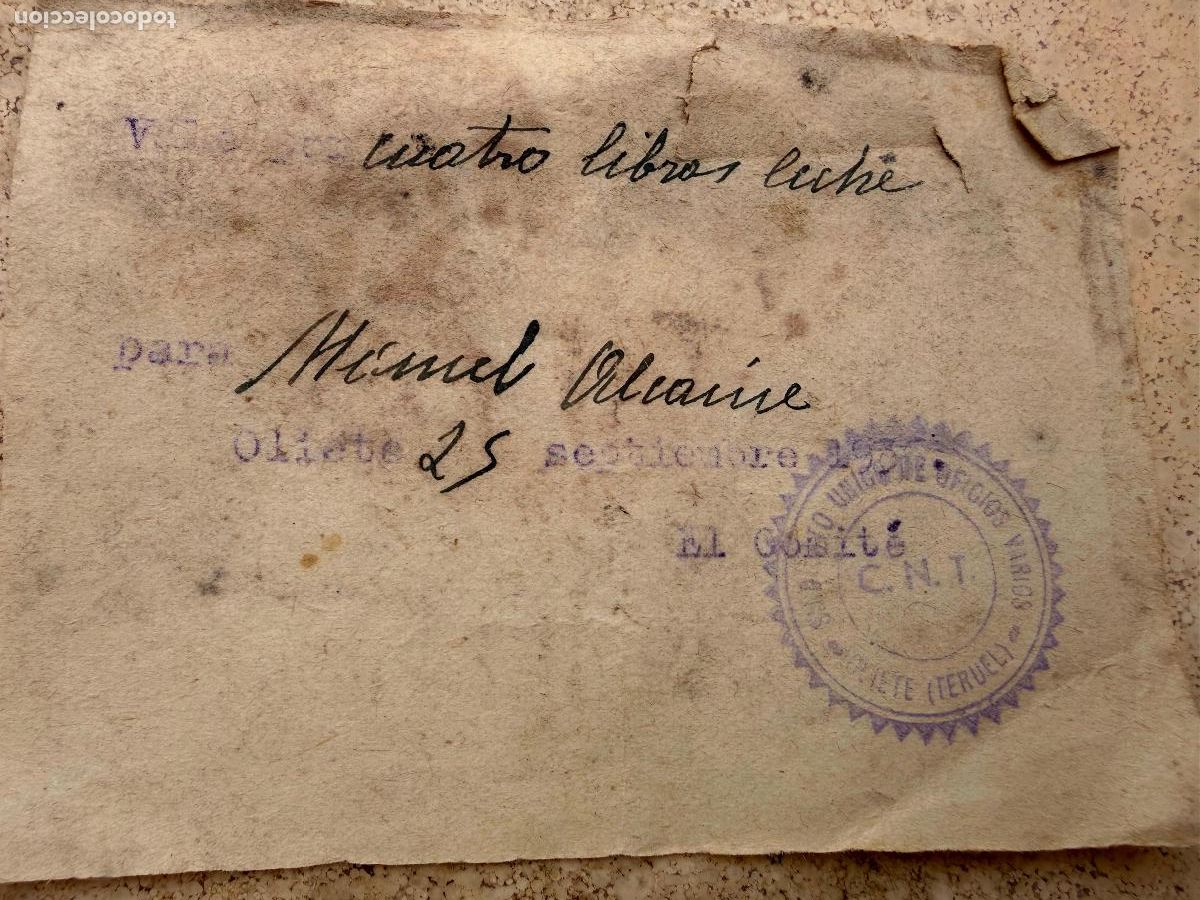 todocoleccion
Vale por cuatro libras leche
para Manuel Alcaine
Oliete 25 septiembre
El Comité
SINDICATO UNICO DE OFICIOS VARIOS
C.N.T.
OLIETE (TERUEL)